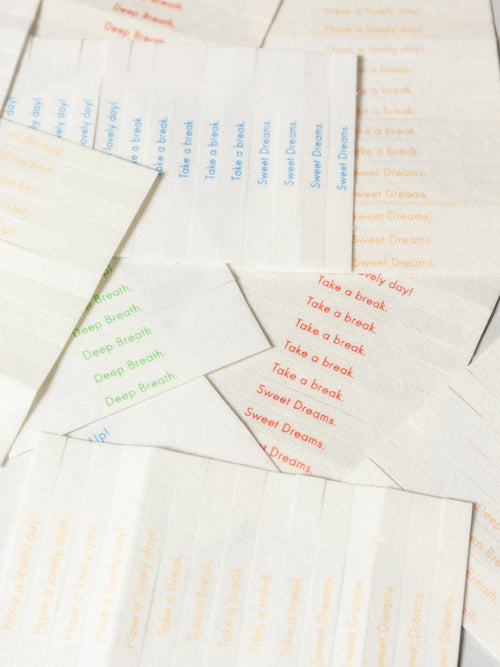 Deep Breath.
Deep Breath.
Have a lovely day!
Have a lovely day!
Have a lovely day!
a break.
a break.
a break.
a break.
a break.
Dreams.
Sweet Dreams.
Sweet Dreams.
Sweet Dreams.
Sweet Dreams.
day!
day!
lovely day!
lovely day!
lovely day!
break.
Take a break.
Take a break.
Take a break.
Take a break.
Sweet Dreams.
Sweet Dreams.
Sweet Dreams.
Sweet Dreams.
All the best.
the best.
the best.
Up!
Up!
Breath.
Deep Breath.
Deep Breath.
Deep Breath.
Deep Breath.
Up!
lovely day!
Take a break.
Take a break.
Take a break.
Take a break.
Take a break.
Sweet Dreams.
Sweet Dreams.
Dreams.
Have a lovely day!
Have a lovely day!
Have a lovely day!
Have a lovely day!
Have a lovely day!
Take a break.
Take a break.
Take a break.
Take a break.
Take a break.
Sweet Dreams.
Sweet Dreams.
Sweet Dreams.
Sweet Dreams.
Sweet Dreams.
Deep
Deep Breath.